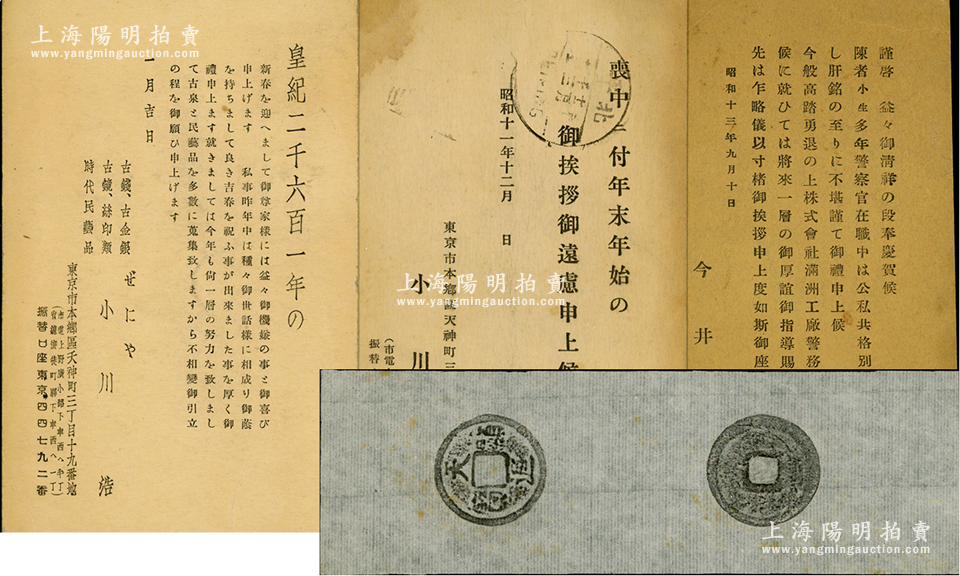 謹啓 益々御淸祥の段奉慶賀候
陳者小生多年警察官在職中は公私共格別
し肝銘の至りに不堪謹て御禮申上候
今般高踏勇退の上株式會社滿洲工廠警務
候に就ひては將來一層の御厚誼御指導賜
先は乍略儀以寸楮御挨拶申上度如斯御座
昭和十三年九月十日
今井
喪中ニ付年末年始の
御挨拶御遠慮申上候
昭和十一年十二月 日
東京市本鄕區天神町三
小川
(市電
振替
北
皇紀二千六百一年の
新春を迎へまして御尊家樣には益々御機嫌の事と御喜び
申上げます 私事昨年中は種々御世話樣に相成り御蔭
を持ちまして良き吉春を祝ふ事が出來ました事を厚く御
禮申上ます就きましては今年も尙一層の努力を致しまし
て古泉と民藝品を多數に蒐集致しますから不相變御引立
の程を御願ひ申上げます
一月吉日
古錢、古金銀
古鏡、繪印類
時代民藝品
ぜにや 小川 浩
東京市本鄕區天神町三丁目十九番地
振替口座東京四四七九二番
上海陽明拍賣
www.yangmingauction.com
上海陽明拍賣
www.yangmingauction.com
上海陽明拍賣
www.yangmingauction.com